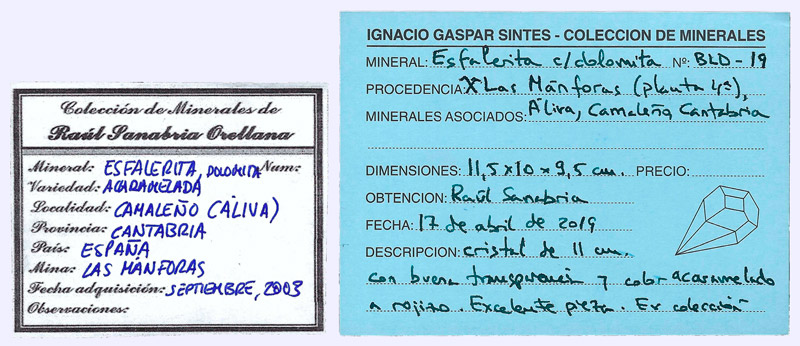 Colección de Minerales de
Raúl Sanabria Orellana
Mineral: ESFALERITA, DOLOMITA Num:
Variedad: ACARAMELADA
Localidad: CAMALEÑO (ÁLIVA)
Provincia: CANTABRIA
País: ESPAÑA
Mina: LAS MÁNFORAS
Fecha adquisición: SEPTIEMBRE, 2003
Observaciones:
IGNACIO GASPAR SINTES - COLECCION DE MINERALES
MINERAL: Esfalerita c/dolomita Nº: BLD-19
PROCEDENCIA: Las Mánforas (planta 4ª),
MINERALES ASOCIADOS: Áliva, Camaleño, Cantabria
DIMENSIONES: 11,5x10x9,5 cm. PRECIO:
OBTENCION: Raúl Sanabria
FECHA: 17 de abril de 2019
DESCRIPCION: cristal de 11 cm.
con buena transparencia y color acaramelado
a rojizo. Excelente pieza. Ex colección